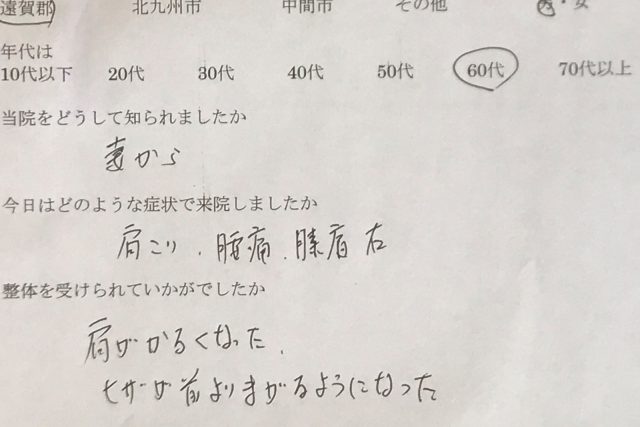 遠賀郡 北九州市 中間市 その他 男・女
年代は
10代以下 20代 30代 40代 50代 60代 70代以上
当院をどうして知られましたか
妻から
今日はどのような症状で来院しましたか
肩こり、腰痛、膝 右
整体を受けられていかがでしたか
肩がかるくなった、
ヒザが前よりまがるようになった